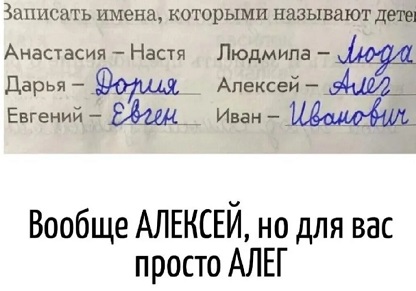 Записать имена, которыми называют дете
Анастасия – Настя Людмила – Люда
Дарья – Дория Алексей – Алег
Евгений – Евген Иван – Иванович
Вообще АЛЕКСЕЙ, но для вас
просто АЛЕГ